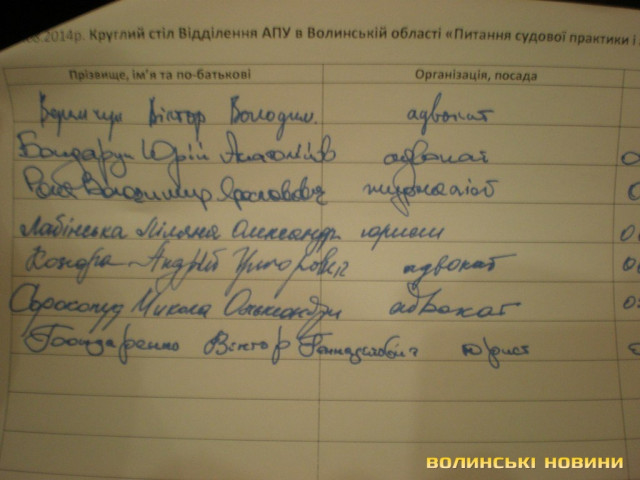 .2014р. Круглий стіл Відділення АПУ в Волинській області «Питання судової практики і
Прізвище, ім'я та по-батькові Організація, посада
Віктор Володим. адвокат
Бондарук Юрій Анатолійов адвокат
Володимир Ярославович журналіст
Лабінська Ліляна Олександр. юрист
Андрій Григорович адвокат
Сорокопуд Микола Олександри адвокат
Гондаренко Віктор Геннадійович юрист
ВОЛИНСЬКІ НОВИНИ